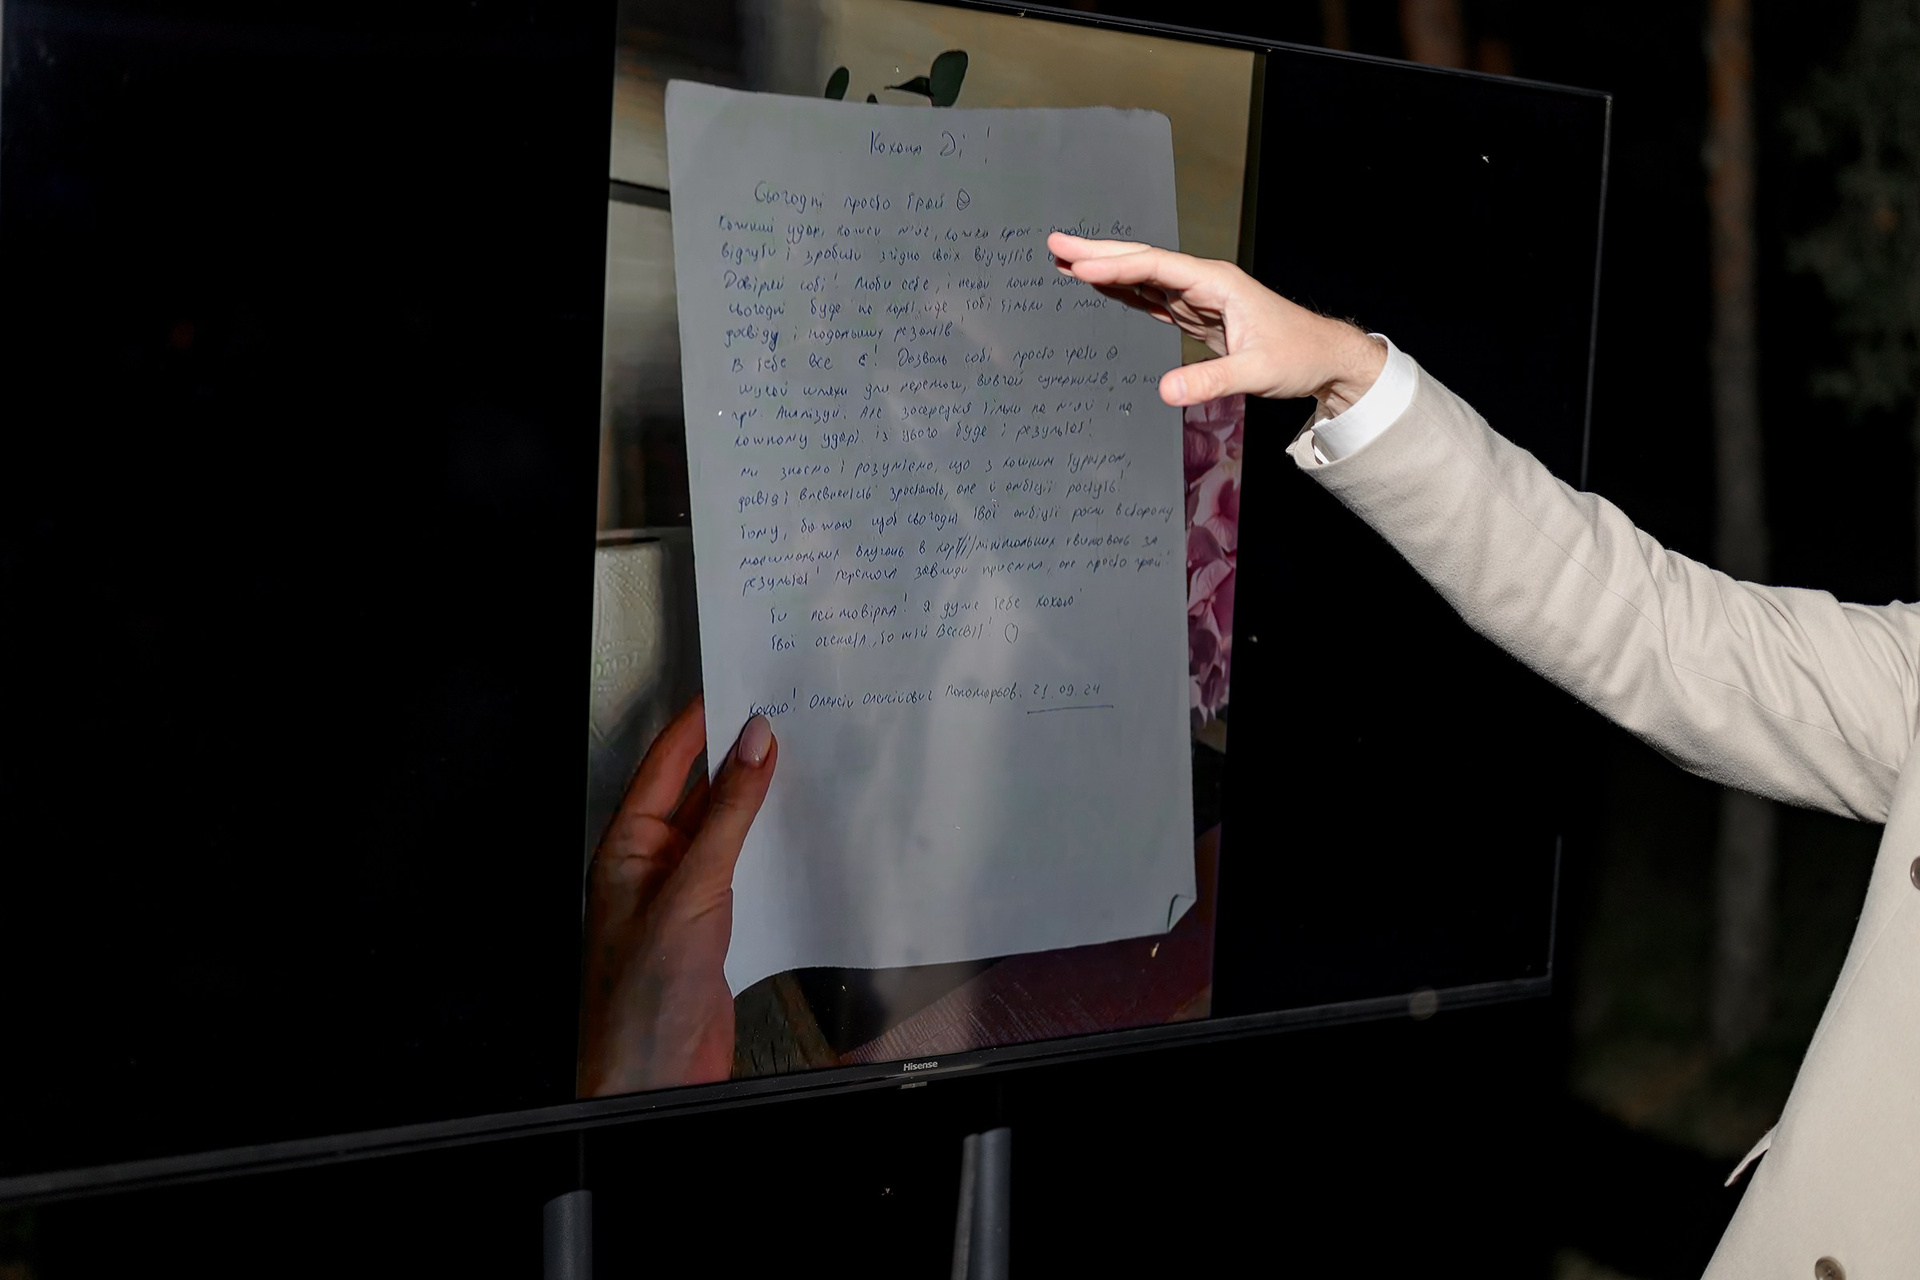 Кохаю Ді!
Сьогодні просто Грай
Кожний удар, кожен м'яч, кожен крок - спробуй все
відчути і зробити згідно своїх відчуттів
Довіряй собі! Люби себе, і нехай кожна
сьогодні буде на корті, йде тобі тільки в плюс
досвіду і подальших результатів
В тебе все є! Дозволь собі просто грати
Шукай шляхи для перемоги, вивчай суперників, по
грі. Аналізуй. Але зосередься тільки на м'ячі і на
кожному ударі. Із цього буде і результат!
Ми знаємо і розуміємо, що з кожним турніром,
досвід і впевненість зростають, але й амбіції ростуть!
Тому, бажаю щоб сьогодні твої амбіції росли в сторону
максимальних влучань в корт//мінімальних хвилювань за
результат! Перемога завжди приємна, але просто грай!
Ти неймовірна! Я дуже тебе кохаю
Твої, то мій Всесвіт!
Кохаю! Олексій Олексійович Пономарьов. 21.09.24
Hisense